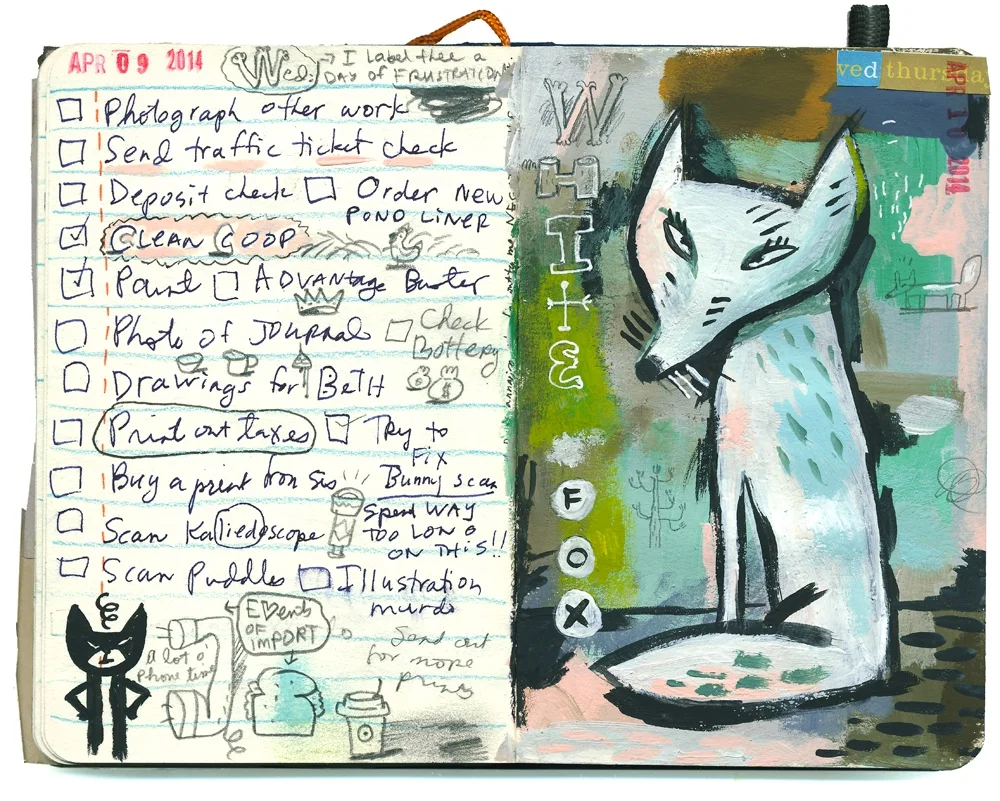 APR 09 2014
Wed. → I label thee a
DAY OF FRUSTRATION
Photograph other work
Send traffic ticket check
Deposit check Order New
POND LINER
CLEAN COOP
Paint ADVANTAGE Buster
Photo of JOURNAL Check
Battery
Drawings for BETH
Print out taxes Try to
Fix
Bunny scan
Buy a print from Sis
Spend WAY
TOO LONG
ON THIS!!
Scan Kaliedoscope
Scan Puddles Illustration
EVENTS
OF
IMPORT
a lot o'
Phone time
Send out
for more
WHITE
FOX
ved thursda
APR 10 2014